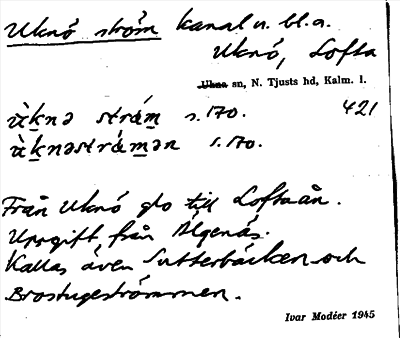 Uknö ström kanal u. bl. a.
Uknö, Lofta
Ukna sn, N. Tjusts hd, Kalm. l.
ùknə strám s. 170. 421
ùknəstrámən s. 170.
Från Uknö glo till Loftaån.
Uppgift från Älgenäs.
Kallas även Sutterbäcken och
Brostugeströmmen.
Ivar Modéer 1945